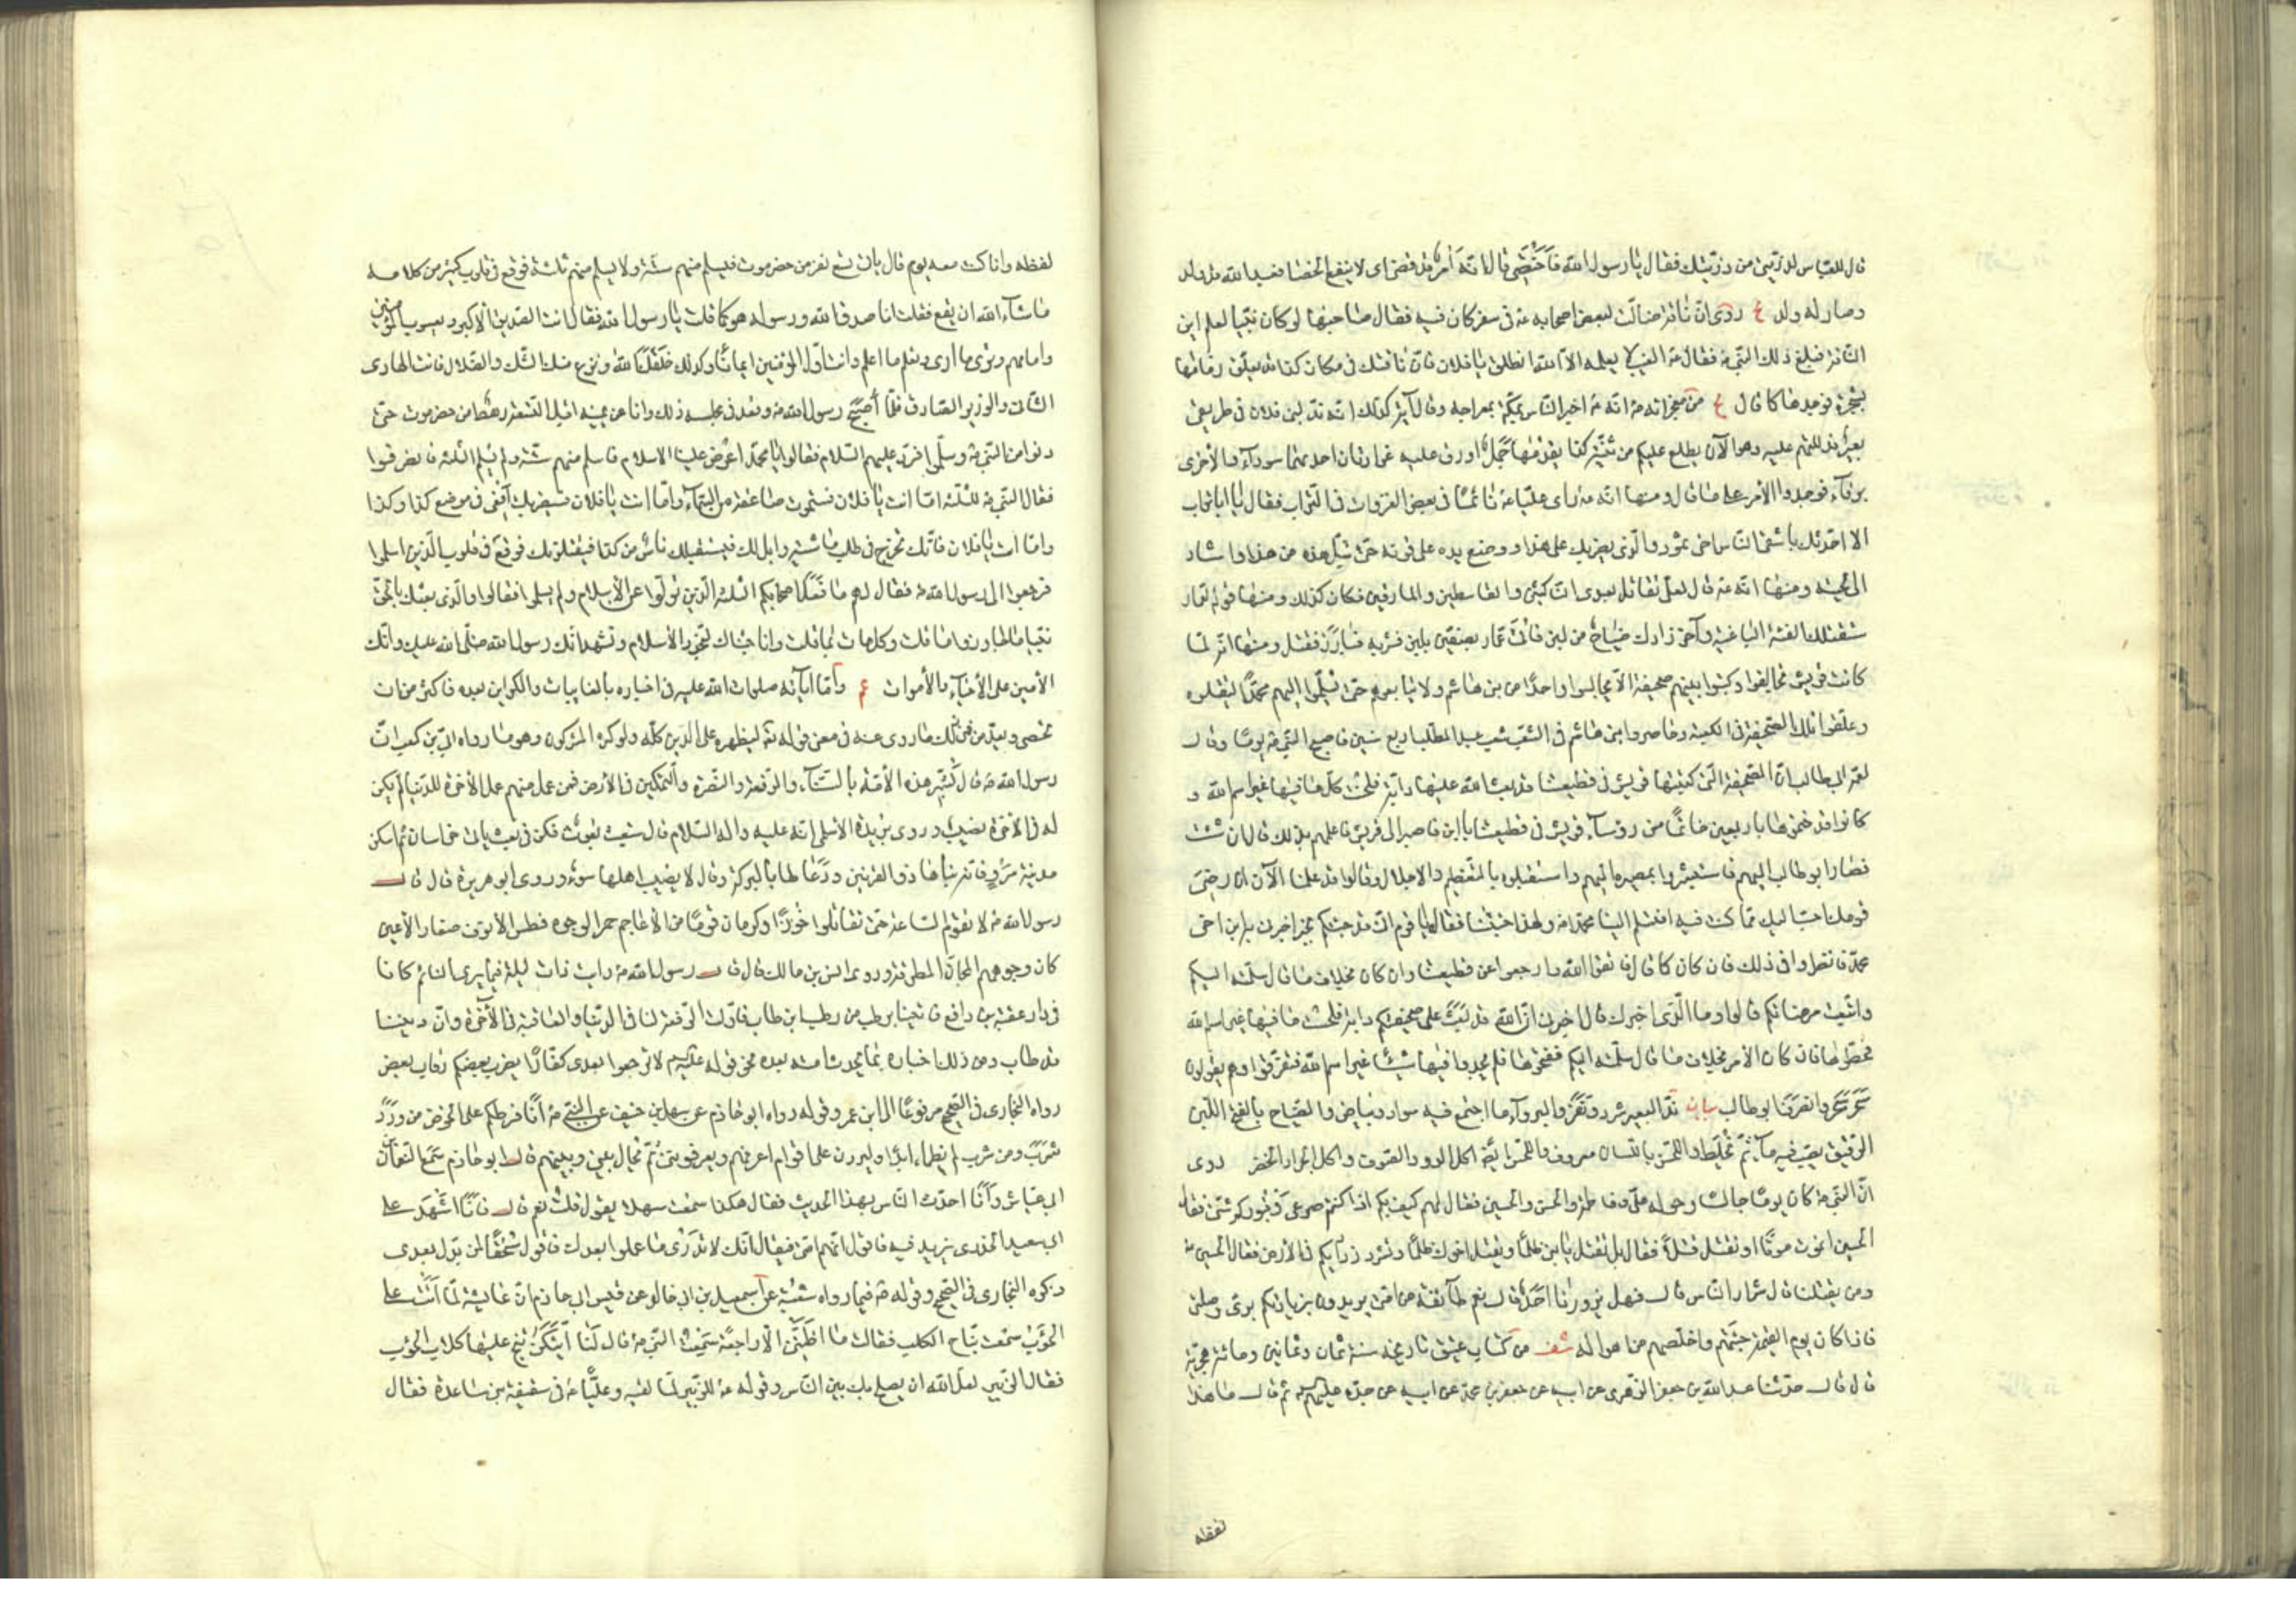 قال للعبّاس لذرّيّتي من ذرّيّتك فقال يا رسول الله فأختصي قال انّه أمر قد قضى اى لا ينفع الخصا فعبد الله قد ولد
وصار له ولد ع روى انّ ناقة ضالّت لبعض اصحابه عه فى سفر كان فيه فقال صاحبها لو كان نبيّا لعلم اين
النّاقة فبلغ ذلك النّبى ص فقال ص الغيب لا يعلمه الّا الله انطلق يا فلان فانّ ناقتك فى مكان كذا قد تعلّق زمامها
بشجرة فوجدها كما قال ع من معجزاته ص انّه ص اخبر النّاس بمكّة بمعراجه وقال آية كذلك انّه ندّ لبنى فلان فى طريقى
بعير فدللتهم عليه وهو الآن يطلع عليكم من ثنيّة كذا يقدمها جمل أورق عليه غرارتان احديهما سوداء والأخرى
برقاء فوجدوا الأمر على ما قال ومنها انّه ص رأى عليّا ع نائمًا فى بعض الغزوات فى التّراب فقال يا ابا تراب
الا احدّثك باشقى النّاس اخى ثمود والّذى يضربك على هذا ووضع يده على قرنه حتّى تبلّ هذه من هذا واشار
الى لحيته ومنها انّه ص قال لعلىّ تقاتل بعدى النّاكثين والقاسطين والمارقين فكان كذلك ومنها قوله لعمّار
ستقتلك الفئة الباغية وآخر زادك ضياح من لبن فأتى عمّار بصفّين بلبن فشربه فبارز فقتل ومنها انّه لمّا
كانت قريش تحالفوا وكتبوا بينهم صحيفة الّا يجالسوا واحدًا من بنى هاشم ولا يبايعوهم حتّى يسلّموا اليهم محمّدًا ليقتلوه
وعلّقوا تلك الصّحيفة فى الكعبة وحاصروا بنى هاشم فى الشّعب شعب عبد المطّلب اربع سنين فاصبح النّبى ص يومًا وقال
لعمّه ابى طالب انّ الصّحيفة الّتى كتبتها قريش فى قطيعتنا قد بعث الله عليها دابّة فلحست كلّ ما فيها غير اسم الله و
كانوا قد ختموها باربعين خاتمًا من رؤساء قريش فى قطيعتنا يا ابن اخى فاصير الى قريش فاعلمهم بذلك قال ان شئت
فصار ابو طالب اليهم فاستبشروا بمصيره اليهم واستقبلوه بالتّعظيم والاجلال وقالوا قد علمنا الآن انّ رضى
قومك احبّ اليك ممّا كنت فيه افتسلم الينا محمّدا ص ولهذا جئتنا فقال يا قوم انّى قد جئتكم بخبر اخبرنى به ابن اخى
محمّد فانظروا فى ذلك فان كان كما قال فاتّقوا الله وارجعوا عن قطيعتنا وان كان بخلاف ما قال سلّمته اليكم
واتّبعت مرضاتكم قالوا وما الّذى اخبرك قال اخبرنى انّ الله قد بعث على صحيفتكم دابّة فلحست ما فيها غير اسم الله
فحطّوها فان كان الأمر بخلاف ما قال سلّمته اليكم ففتحوها فلم يجدوا فيها شيئًا غير اسم الله فتفرّقوا وهم يقولون
سحر سحر وانصرف ابو طالب بيان ندّ البعير شرد ونفر والبرقاء ما اجتمع فيه سواد وبياض والضّياح بالفتح اللّبن
الرّقيق يصبّ فيه ماء ثمّ يخلط واللّحس باللّسان معروف واللّحس ايضًا اكل الدّود الصّوف واكل الجراد الخضر روى
انّ النّبى ص كان يومًا جالسًا وحوله علىّ وفاطمة والحسن والحسين فقال لهم كيف بكم اذا كنتم صرعى وقبوركم شتّى فقال
الحسين انموت موتًا او نقتل قتلًا فقال بل تقتل يا بنىّ ظلمًا ويقتل اخوك ظلمًا وتشرّد ذراريكم فى الأرض فقال الحسين ع
ومن يقتلنا قال شرار النّاس قال فهل يزورنا احد قال نعم طائفة من امّتى يريدون بزيارتكم برّى وصلتى
فاذا كان يوم القيمة جئتهم واخلّصهم من اهواله شف من كتاب عتيق تاريخه سنة ثمان وثمانين ومائة هجريّة
قال قال حدّثنا عبد الله بن جعفر الزّهرى عن ابيه عن جعفر بن محمّد عن ابيه عن جدّه عليهم ثم قال ما هذا
لفظه
لفظه وانا كنت معه يوم قال يأتى تسع نفر من حضرموت فيسلم منهم ستّة ولا يسلم منهم ثلثة فوقع فى قلوب كثير من كلامه
ما شاء الله ان يقع فقلت انا صدق الله ورسوله هو كما قلت يا رسول الله فقال انت الصّدّيق الأكبر ويعسوب المؤمنين
وامامهم وترى ما ارى وتعلم ما اعلم وانت اوّل المؤمنين ايمانًا وكذلك خلقك الله ونزع منك الشّك والضّلال فانت الهادى
الثّانى والوزير الصّادق فلمّا أصبح رسول الله ص وقعد فى مجلسه ذلك وانا عن يمينه اقبل التّسعة رهط من حضرموت حتّى
دنوا من النّبى ص وسلّموا فردّ عليهم السّلام فقالوا يا محمّد اعرض علينا الاسلام فاسلم منهم ستّة ولم يسلم الثلثة فانصرفوا
فقال النّبى ص للثلثة امّا انت يا فلان فستموت بصاعقة من السّماء وامّا انت يا فلان فسيضربك افعى فى موضع كذا وكذا
وامّا انت يا فلان فانّك تخرج فى طلب ماشية وابل لك فيستقبلك ناس من كذا فيقتلونك فوقع فى قلوب الّذين اسلموا
فرجعوا الى رسول الله ص فقال لهم ما فعل اصحابكم الثلثة الّذين تولّوا عن الأسلام ولم يسلموا فقالوا والّذى بعثك بالحقّ
نبيّا ما جاوزوا ما قلت وكلّ مات بما قلت وانا جئناك لنجدّد الأسلام ونشهد انّك رسول الله صلّى الله عليك وانّك
الأمين على الأحياء والأموات عم وامّا آياته صلوات الله عليه فى اخباره بالغايبات والكواين بعده فاكثر من ان
تحصى وتعدّ من ذلك ما روى عنه فى معنى قوله تع ليظهره على الدّين كلّه ولو كره المشركون وهو ما رواه ابىّ بن كعب انّ
رسول الله ص قال بشّر هذه الأمّة بالسّناء والرّفعة والنّصرة والتّمكين فى الأرض فمن عمل منهم عمل الأخرة للدّنيا لم يكن
له فى الأخرة نصيب وروى بريدة الأسلمى انّه عليه واله السّلام قال ستبعث بعوث فكن فى بعث يأتى خراسان ثمّ اسكن
مدينة مرو فانّه بناها ذو القرنين ودعا لها بالبركة وقال لا يصيب اهلها سوء وروى ابو هريرة قال قال
رسول الله ص لا تقوم السّاعة حتّى تقاتلوا خوزًا وكرمان قومًا من الأعاجم حمر الوجوه فطس الأنوف صغار الأعين
كانّ وجوههم المجانّ المطرقة وروى انس بن مالك قال قال رسول الله ص رايت ذات ليلة فيما يرى النّائم كانّا
فى دار عقبة بن رافع فاتينا برطب من رطب ابن طاب فاوّلت الرّفعة لنا فى الدّنيا والعاقبة فى الأخرة وانّ ديننا
قد طاب ومن ذلك اخباره بما يحدث امّته بعده نحو قوله ع لا ترجعوا بعدى كفّارًا يضرب بعضكم رقاب بعض
رواه البخارى فى الصّحيح مرفوعًا الى ابن عمر وقوله رواه ابو حازم عن سهل بن حنيف عن النّبى ص انا فرطكم على الحوض من ورد
شرب ومن شرب لم يظماء ابدًا وليردنّ علىّ اقوام اعرفهم ويعرفوننى ثمّ يحال بينى وبينهم قال ابو حازم سمع النّعمان
ابى عيّاش وانا احدّث النّاس بهذا الحديث فقال هكذا سمعت سهلا يقول قلت نعم قال فانا اشهد على
ابى سعيد الخدرى يزيد فيه فاقول انّهم امّتى فيقال انّك لا تدرى ما عملوا بعدك فاقول سحقًا لمن بدّل بعدى
ذكره البخارى فى الصّحيح وقوله ص فيما رواه شعبة عن اسمعيل بن ابى خالد عن قيس ابى حازم انّ عايشة لمّا اتت على
الحوئب سمعت نباح الكلب فقالت ما اظنّنى الّا راجعة سمعت النّبى ص قال لنا ايّتكنّ تنبح عليها كلاب الحوئب
فقال الزّبير لعلّ الله ان يصلح بك بين النّاس وقوله ص للزّبير لمّا لقيه وعليّا ع فى سقيفة بنى ساعدة فقال